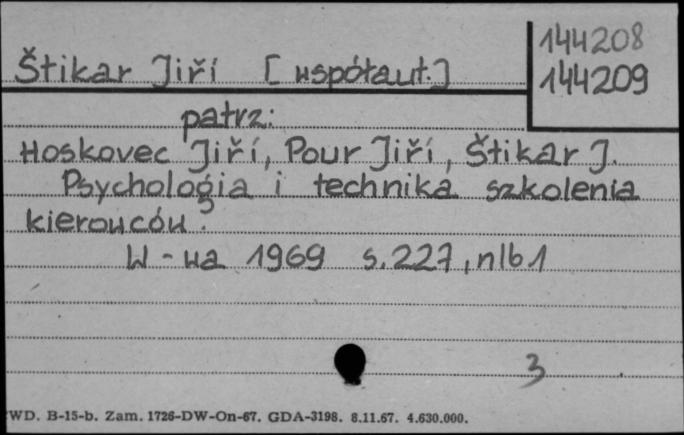 144208
Štikar Jiří [współaut.]
144209
patrz:
Hoskovec Jiří, Pour Jiří, Štikar J.
Psychologia i technika szkolenia
kierowców.
W-wa 1969 s. 227, nlb 1
3
WD. B-15-b. Zam. 1726-DW-On-67. GDA-3198. 8.11.67. 4.630.000.